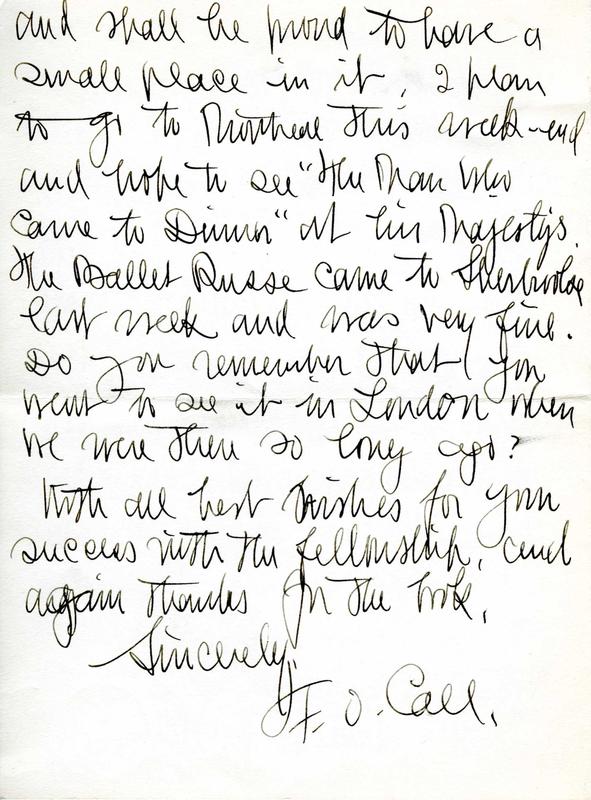 and shall be proud to have a
small place in it. I plan
to go to Montreal this week-end
and hope to see "The Man Who
Came to Dinner" at His Majestys.
The Ballet Russe came to Sherbrooke
last week and was very fine.
Do you remember that you
went to see it in London when
we were there so long ago?
With all best wishes for your
success with the fellowship, and
again thanks for the book,
Sincerely,
F. O. Call.